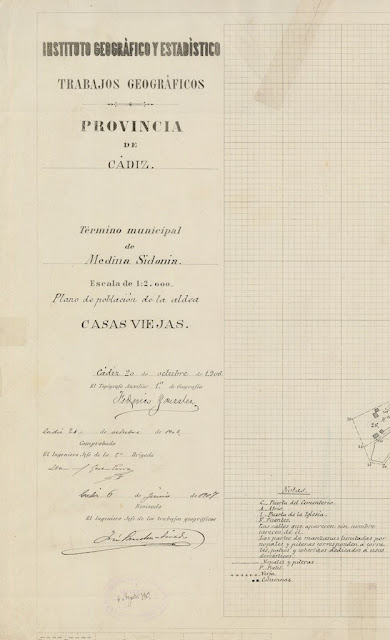 INSTITUTO GEOGRÁFICO Y ESTADÍSTICO
TRABAJOS GEOGRÁFICOS
PROVINCIA
DE
CÁDIZ.
Término municipal
de
Medina Sidonia.
Escala de 1:2.000.
Plano de población de la aldea
CASAS VIEJAS.
Cádiz 20 de octubre de 1906
El Topógrafo Auxiliar 1º de Geografía
Federico González
de octubre de
Comprobado
El Ingeniero Jefe de la Brigada
Cádiz 6 de junio 1907
Revisado
El Ingeniero Jefe de los trabajos geográficos
Notas
C. Puerta del Cementerio.
A. Atrio.
I. Puerta de la Iglesia.
F. Fuentes.
Las calles que aparecen sin nombre
carecen de él.
Las partes de manzanas limitadas por
nopales y piteras corresponden á corra-
les, patios y cobertizos dedicados á usos
domésticos.
Nopales y piteras
P. Patio.
Verja.
Columnas.